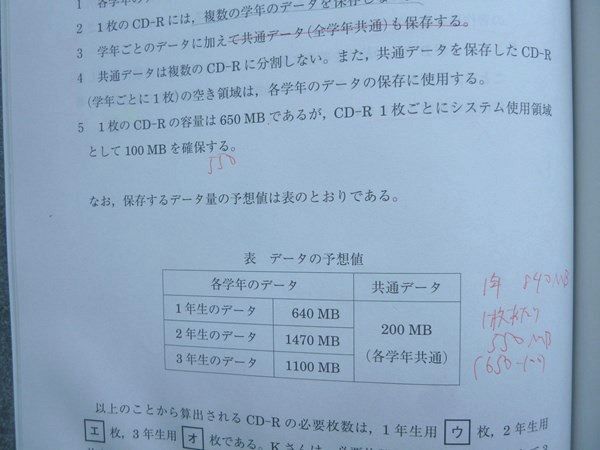 1 各学年の
2 1枚のCD-Rには,複数の学年のデータを保存しない。
3 学年ごとのデータに加えて共通データ(全学年共通)も保存する。
4 共通データは複数のCD-Rに分割しない。また,共通データを保存したCD-R
(学年ごとに1枚)の空き領域は,各学年のデータの保存に使用する。
5 1枚のCD-Rの容量は650 MBであるが,CD-R 1枚ごとにシステム使用領域
として100 MBを確保する。
550
なお,保存するデータ量の予想値は表のとおりである。
表 データの予想値
各学年のデータ 共通データ
1年生のデータ 640 MB
2年生のデータ 1470 MB
3年生のデータ 1100 MB
200 MB
(各学年共通)
1年 840MB
1枚あたり
550MB
(650-100)
以上のことから算出されるCD-Rの必要枚数は,1年生用 ウ 枚,2年生用
エ 枚,3年生用 オ 枚である。Kさんは,